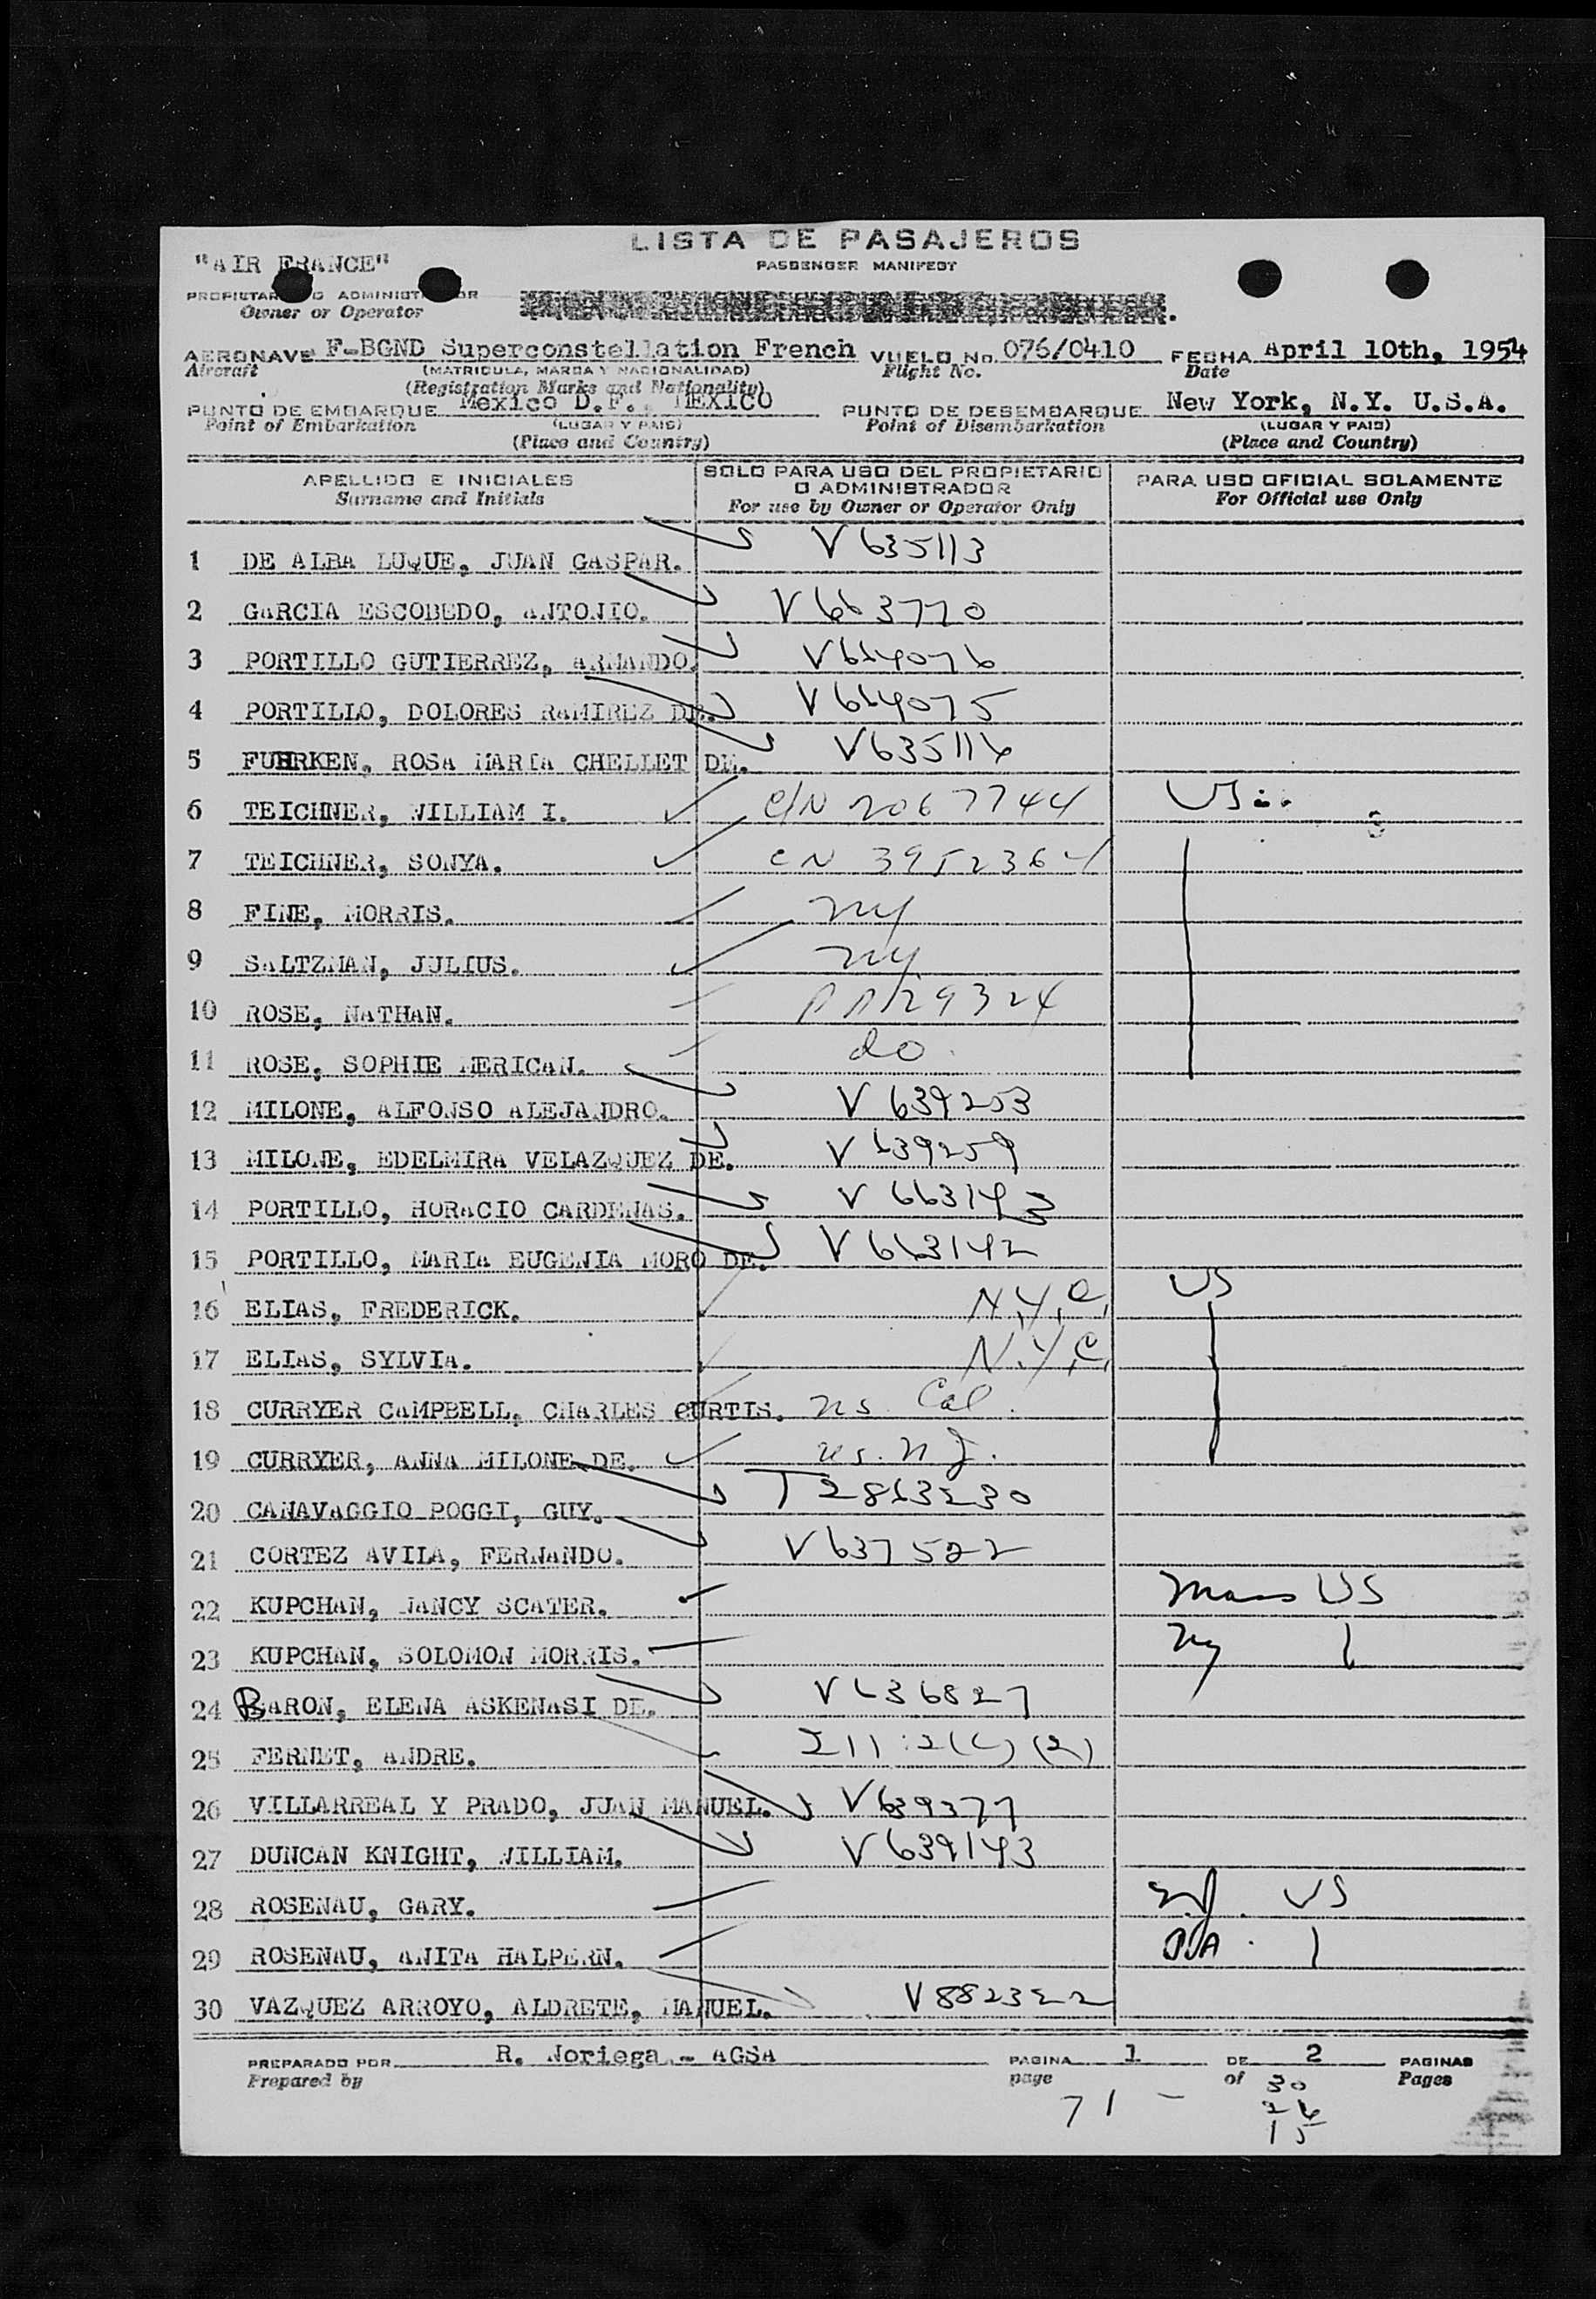 LISTA DE PASAJEROS
PASSENGER MANIFEST
"AIR FRANCE"
PROPIETARIO O ADMINISTRADOR
Owner or Operator
AERONAVE F-BGND Superconstellation French VUELO No. 076/0410 FECHA April 10th, 1954
Aircraft (MATRICULA, MARCA Y NACIONALIDAD) Flight No. Date
(Registration Marks and Nationality)
PUNTO DE EMBARQUE Mexico D.F., MEXICO PUNTO DE DESEMBARQUE New York, N.Y. U.S.A.
Point of Embarkation (LUGAR Y PAIS) Point of Disembarkation (LUGAR Y PAIS)
(Place and Country) (Place and Country)
APELLIDO E INICIALES SOLO PARA USO DEL PROPIETARIO O ADMINISTRADOR PARA USO OFICIAL SOLAMENTE
Surname and Initials For use by Owner or Operator Only For Official use Only
1 DE ALBA LUQUE, JUAN GASPAR. V635113
2 GARCIA ESCOBEDO, ANTONIO. V663770
3 PORTILLO GUTIERREZ, ARMANDO. V614076
4 PORTILLO, DOLORES RAMIREZ DE. V614075
5 FUHRKEN, ROSA MARIA CHELLET DE. V635116
6 TEICHNER, WILLIAM I. C/N 2067744 US
7 TEICHNER, SONYA. CN 3952364
8 FINE, MORRIS. NY
9 SALTZMAN, JULIUS. NY
10 ROSE, NATHAN. 29324
11 ROSE, SOPHIE MERICAN. do
12 MILONE, ALFONSO ALEJANDRO. V 639253
13 MILONE, EDELMIRA VELAZQUEZ DE. V 639259
14 PORTILLO, HORACIO CARDENAS. V 663143
15 PORTILLO, MARIA EUGENIA MORO DE. V 663142
16 ELIAS, FREDERICK. N.Y.C. US
17 ELIAS, SYLVIA. N.Y.C.
18 CURRYER CAMPBELL, CHARLES CURTIS. US. Cal.
19 CURRYER, ANNA MILONE DE. us. NJ.
20 CANAVAGGIO POGGI, GUY. T2813230
21 CORTEZ AVILA, FERNANDO. V637522
22 KUPCHAN, NANCY SCATER. Mass US
23 KUPCHAN, SOLOMON MORRIS. NY
24 BARON, ELENA ASKENASI DE. V636827
25 FERNET, ANDRE. 211.2(c)(2)
26 VILLARREAL Y PRADO, JUAN MANUEL. V639377
27 DUNCAN KNIGHT, WILLIAM. V639143
28 ROSENAU, GARY. US
29 ROSENAU, ANITA HALPERN. PA.
30 VAZQUEZ ARROYO, ALDRETE, MANUEL. V882322
PREPARADO POR R. Noriega - AGSA PAGINA 1 DE 2 PAGINAS
Prepared by page of Pages
71 - 30
26
15